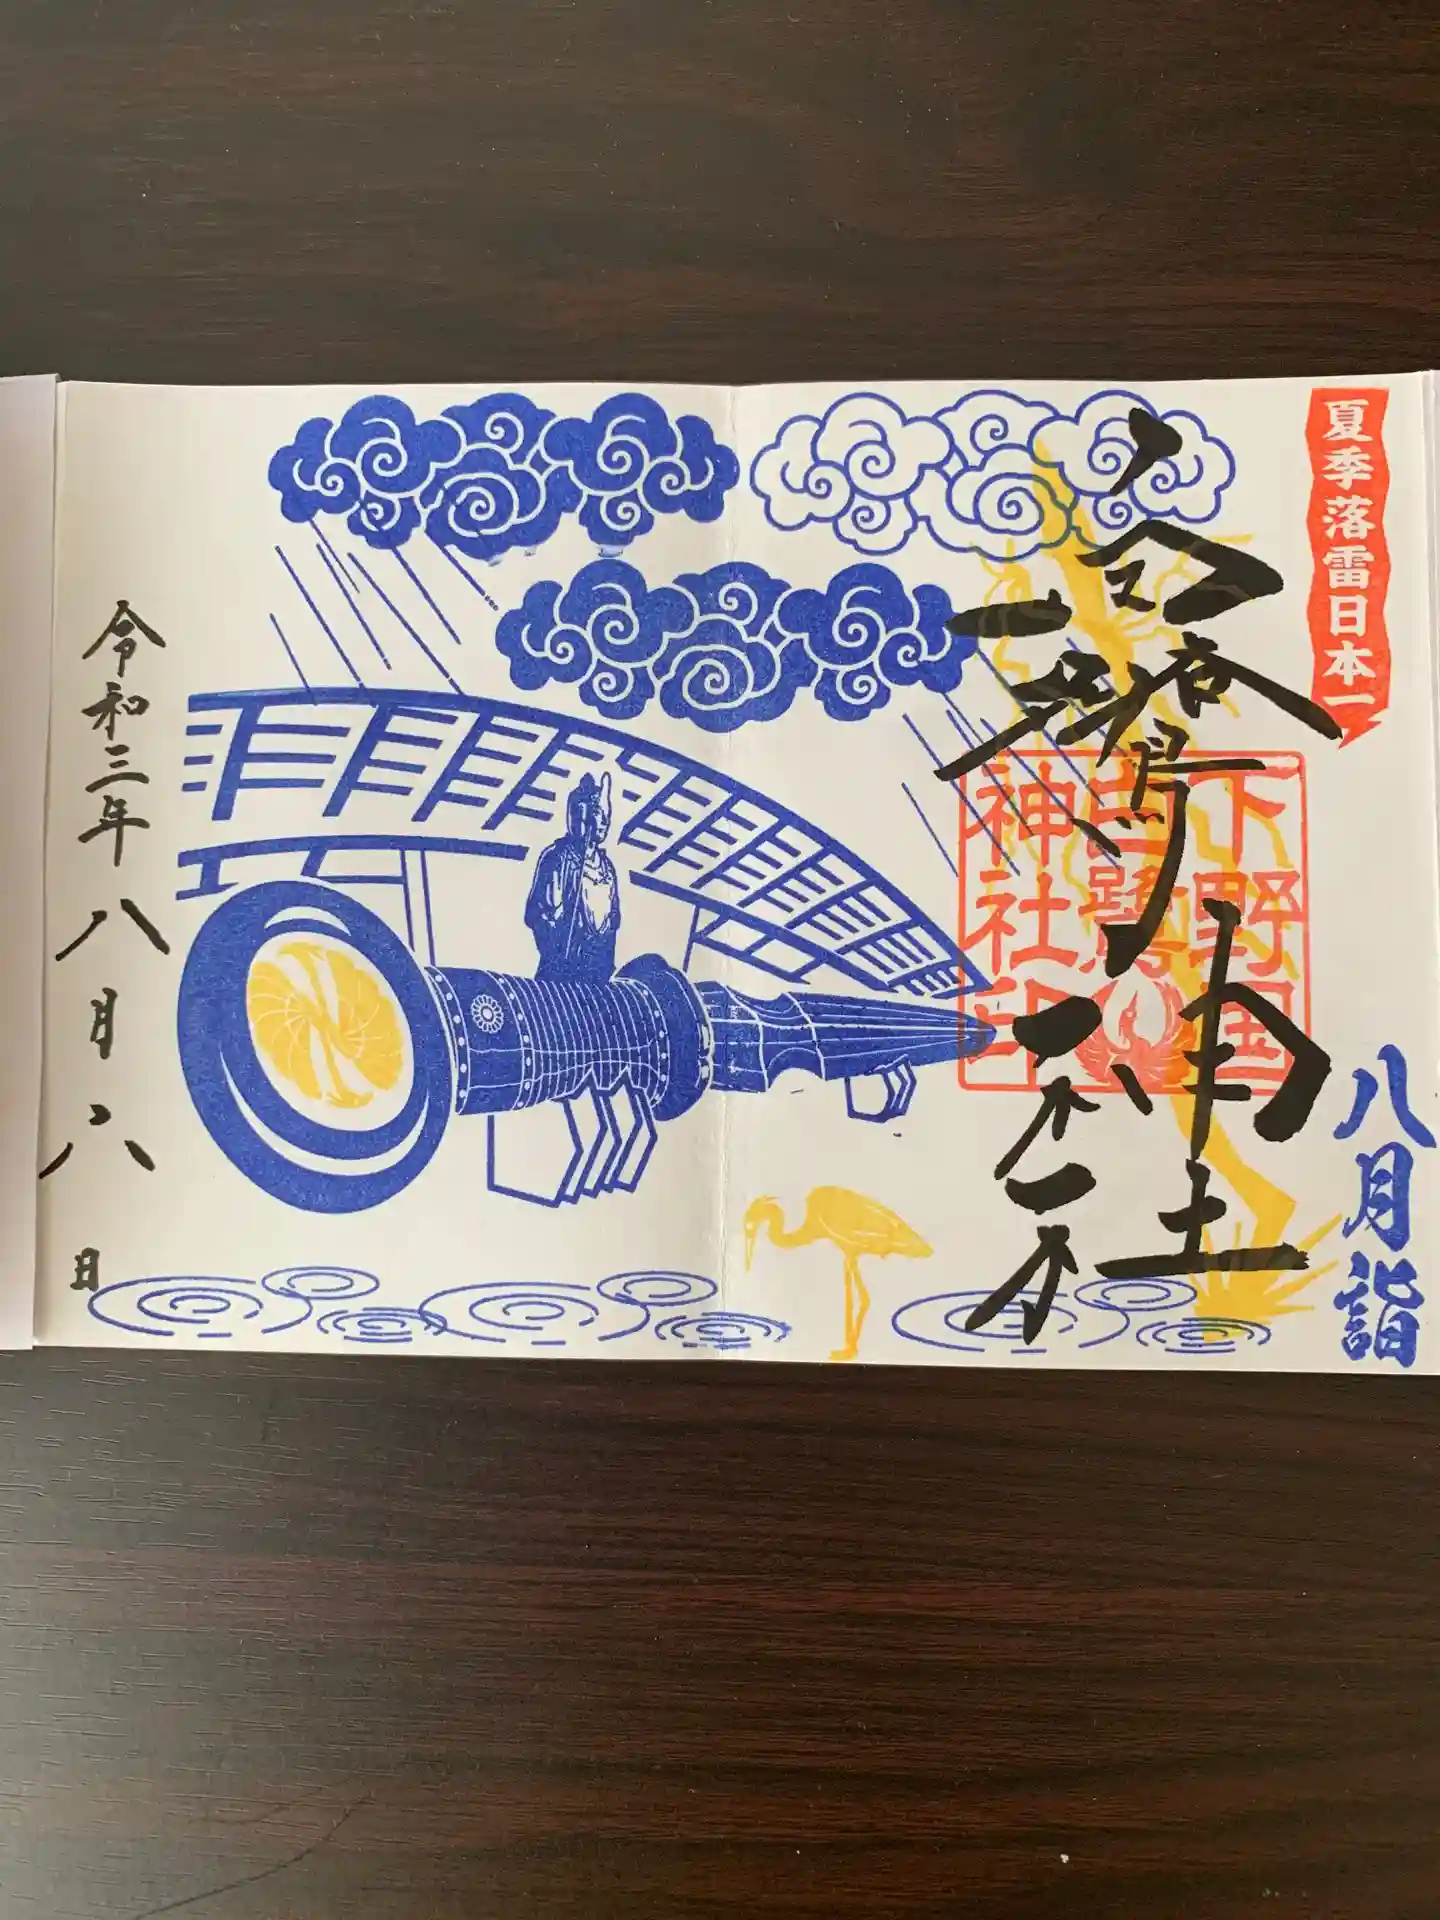 夏季落雷日本一
八月詣
白鷺神社
下野国
白鷺
神社印
令和三年八月六日